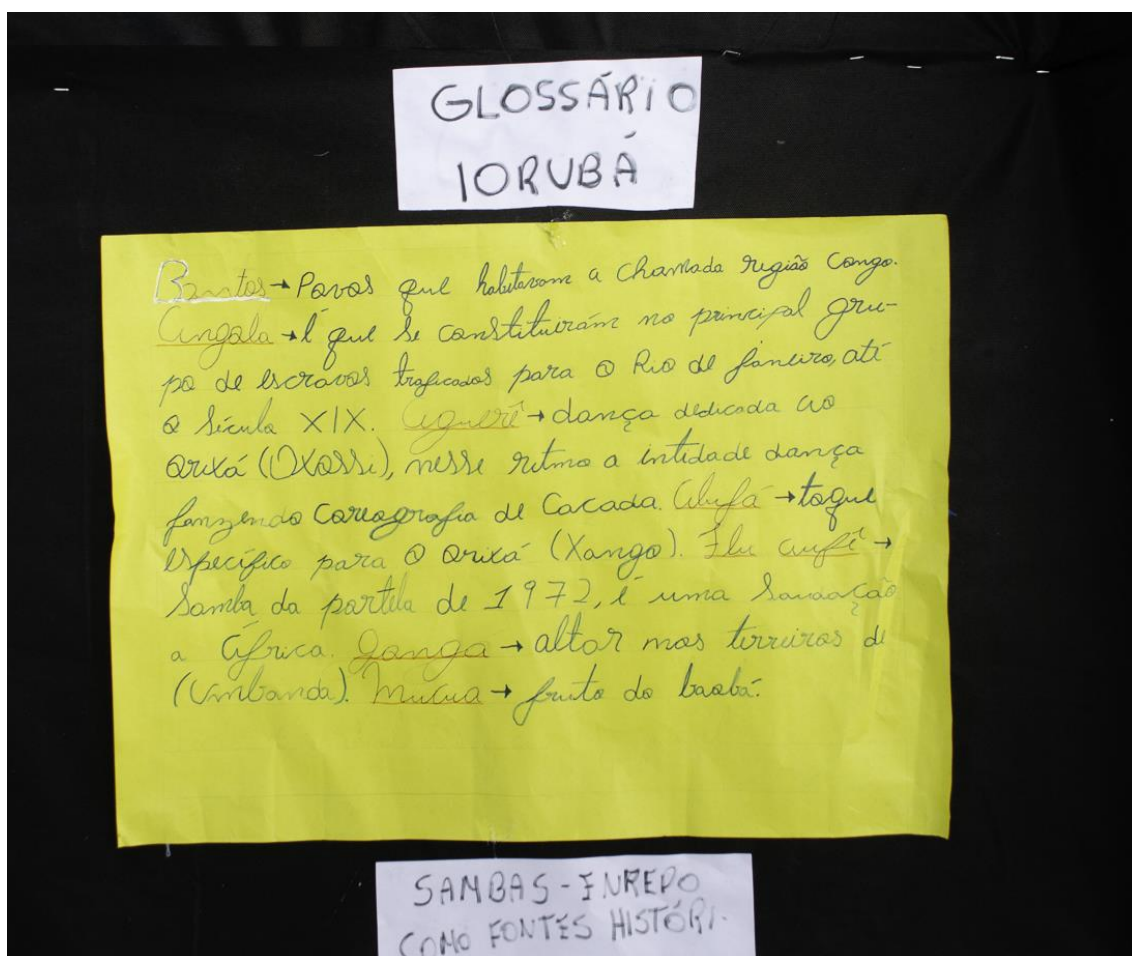 GLOSSÁRIO
IORUBÁ
Bantos → Povos que habitavam a chamada região congo.
Angola → é que se constituirám no principal gru-
po de escravos traficados para o Rio de janeiro, até
o século XIX. Aguerê → dança dedicada ao
orixá (Oxossi), nesse ritmo a intidade dança
fanzendo Coreografia de Cacada. Alufá → toque
específico para o orixá (Xango). Ilu →
Samba da portela de 1972, é uma
a África. Gonga → altar mos terreiros de
(Umbanda). Mucua → fruto do baobá.
SAMBAS-ENREDO
COMO FONTES HISTÓRI.